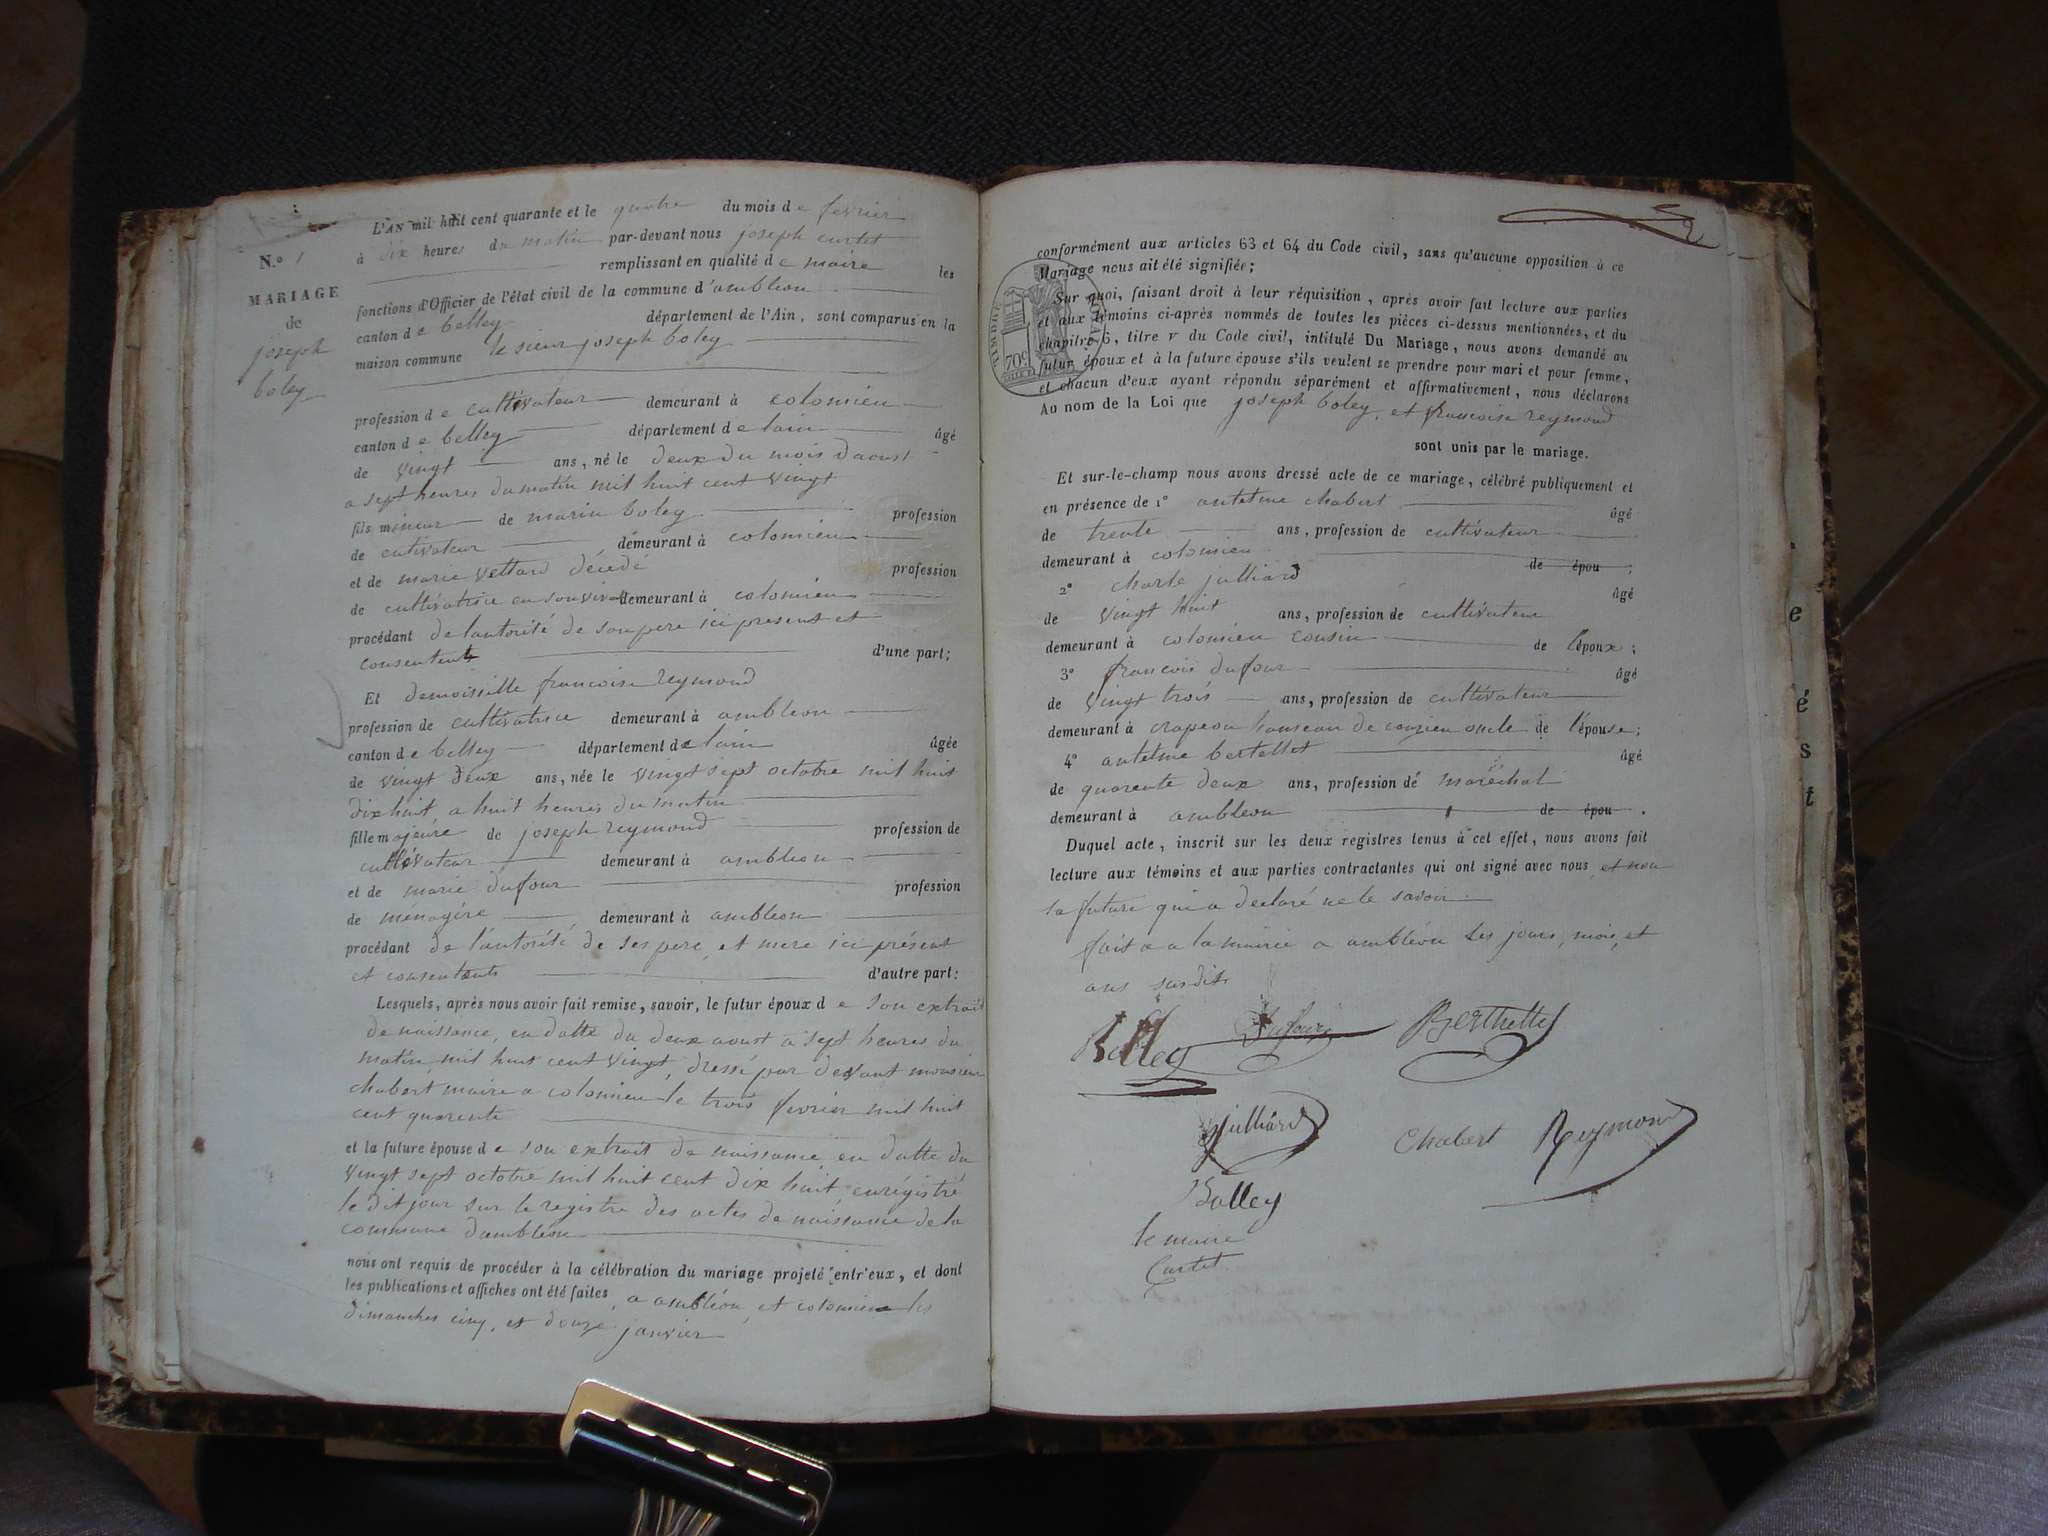 N.o 1
MARIAGE
de
joseph
boley
L'AN mil huit cent quarante et le quatre du mois de fevrier
à dix heures du matin par-devant nous joseph curtet
remplissant en qualité de maire les
fonctions d'Officier de l'état civil de la commune d'ambleon
canton de belley département de l'Ain, sont comparus en la
maison commune le sieur joseph boley
profession de cultivateur demeurant à colomieu
canton de belley département de lain âgé
de vingt ans, né le deux du mois daoust
a sept heures du matin mil huit cent vingt
fils mineur de marin boley profession
de cutivateur démeurant à colomieu
et de marie vettard décédé profession
de cultivatrice en son viva demeurant à colomieu
procédant de lautorité de son pere ici present et
consentent d'une part;
Et demoiselle francoise reymond
profession de cultivatrice demeurant à ambleon
canton de belley département de lain âgée
de vingt deux ans, née le vingt sept octobre mil huit
dix huit a huit heures du matin
fille majeure de joseph reymond profession de
cultivateur demeurant à ambleon
et de marie dufour profession
de ménagére demeurant à ambleon
procédant de l'autorité de ses pere, et mere ici présent
et consentents d'autre part:
Lesquels, après nous avoir fait remise, savoir, le futur époux de son extrait
de naissance, en datte du deux aoust a sept heures du
matin, mil huit cent vingt, dressé par devant monsieur
chabert maire a colomieu le trois fevrier mil huit
cent quarente
et la future épouse de son extrait de naissance en datte du
vingt sept octobre mil huit cent dix huit, enrégistré
le dit jour sur le registre des actes de naissance de la
commune d'ambleon
nous ont requis de procéder à la célébration du mariage projeté entr'eux, et dont
les publications et affiches ont été faites a ambléon, et colomieu les
dimanches cinq, et douze janvier
TIMBRE ROYAL
70c
conformément aux articles 63 et 64 du Code civil, sans qu'aucune opposition à ce
Mariage nous ait été signifiée;
Sur quoi, faisant droit à leur réquisition, après avoir fait lecture aux parties
et aux témoins ci-après nommés de toutes les pièces ci-dessus mentionnées, et du
chapitre 6, titre v du Code civil, intitulé Du Mariage, nous avons demandé au
futur époux et à la future épouse s'ils veulent se prendre pour mari et pour femme,
et chacun d'eux ayant répondu séparément et affirmativement, nous déclarons
Au nom de la Loi que joseph boley, et francoise reymond
sont unis par le mariage.
Et sur-le-champ nous avons dressé acte de ce mariage, célébré publiquement et
en présence de 1o antelme chabert âgé
de trente ans, profession de cultivateur
demeurant à colomieu de épou ;
2o charle julliard âgé
de vingt huit ans, profession de cultivateur
demeurant à colomieu cousin de l'époux;
3o francois dufour âgé
de vingt trois ans, profession de cultivateur
demeurant à crapeou hameau de conzieu oncle de l'épouse;
4o antelme bertellet âgé
de quarente deux ans, profession de maréchal
demeurant à ambleon de épou .
Duquel acte, inscrit sur les deux registres tenus à cet effet, nous avons fait
lecture aux témoins et aux parties contractantes qui ont signé avec nous, et non
la future qui a declaré ne le savoir
fait a a la mairie a ambléon les jours, mois, et
ans susdits
Bolley Dufour Berthellet
Julliard Chabert Reymond
Bolley
le maire
Curtet